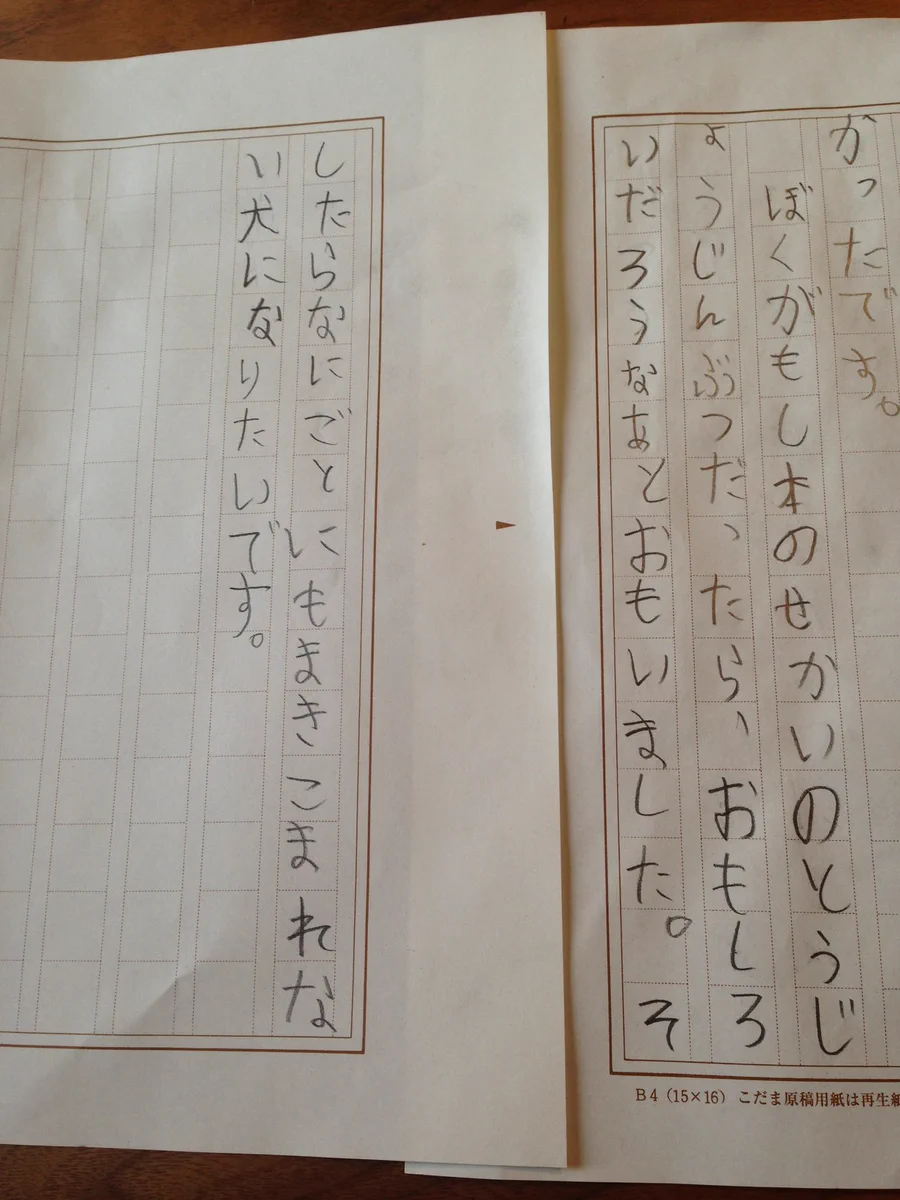 かったです。
ぼくがもし本のせかいのとうじ
ょうじんぶつだったら、おもしろ
いだろうなあとおもいました。そ
したらなにごとにもまきこまれな
い犬になりたいです。
B4（15×16）こだま原稿用紙は再生紙